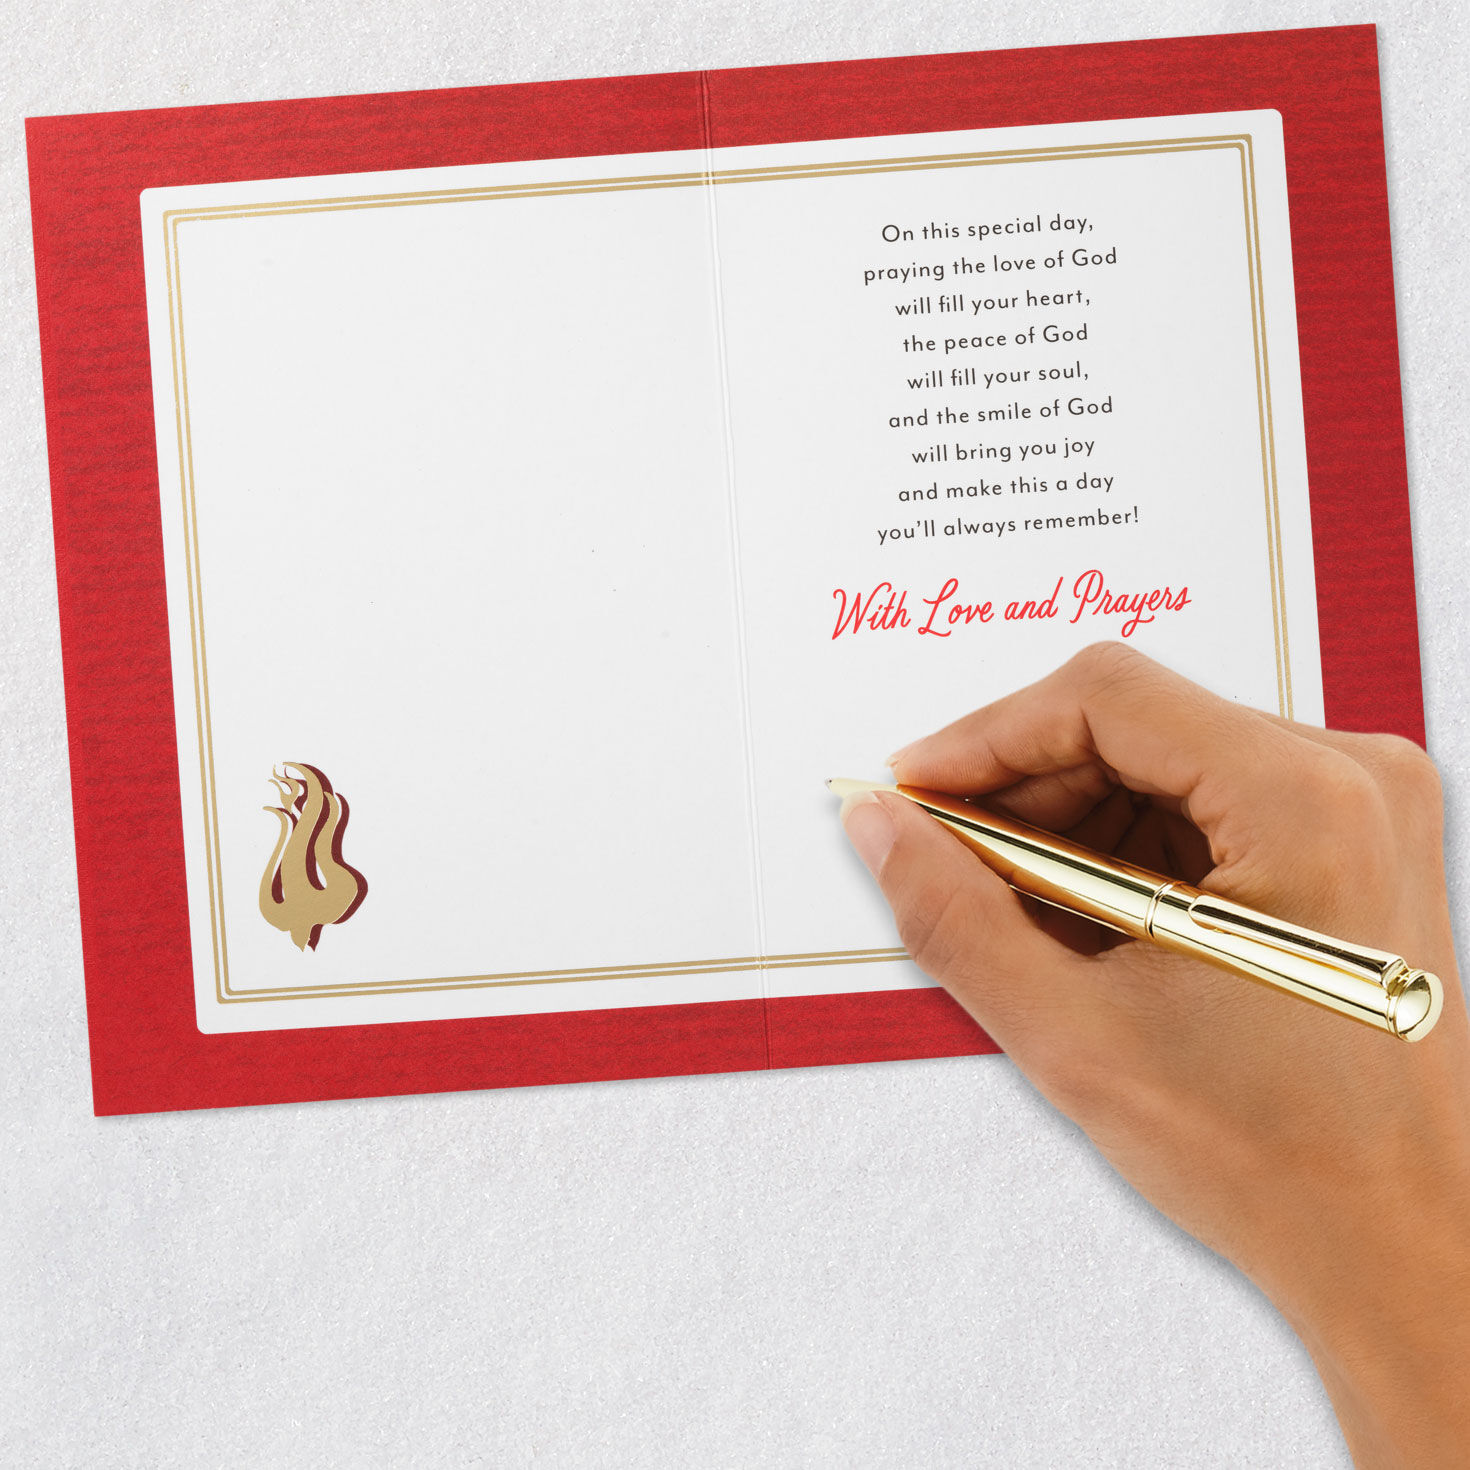 On this special day,
praying the love of God
will fill your heart,
the peace of God
will fill your soul,
and the smile of God
will bring you joy
and make this a day
you'll always remember!
With Love and Prayers